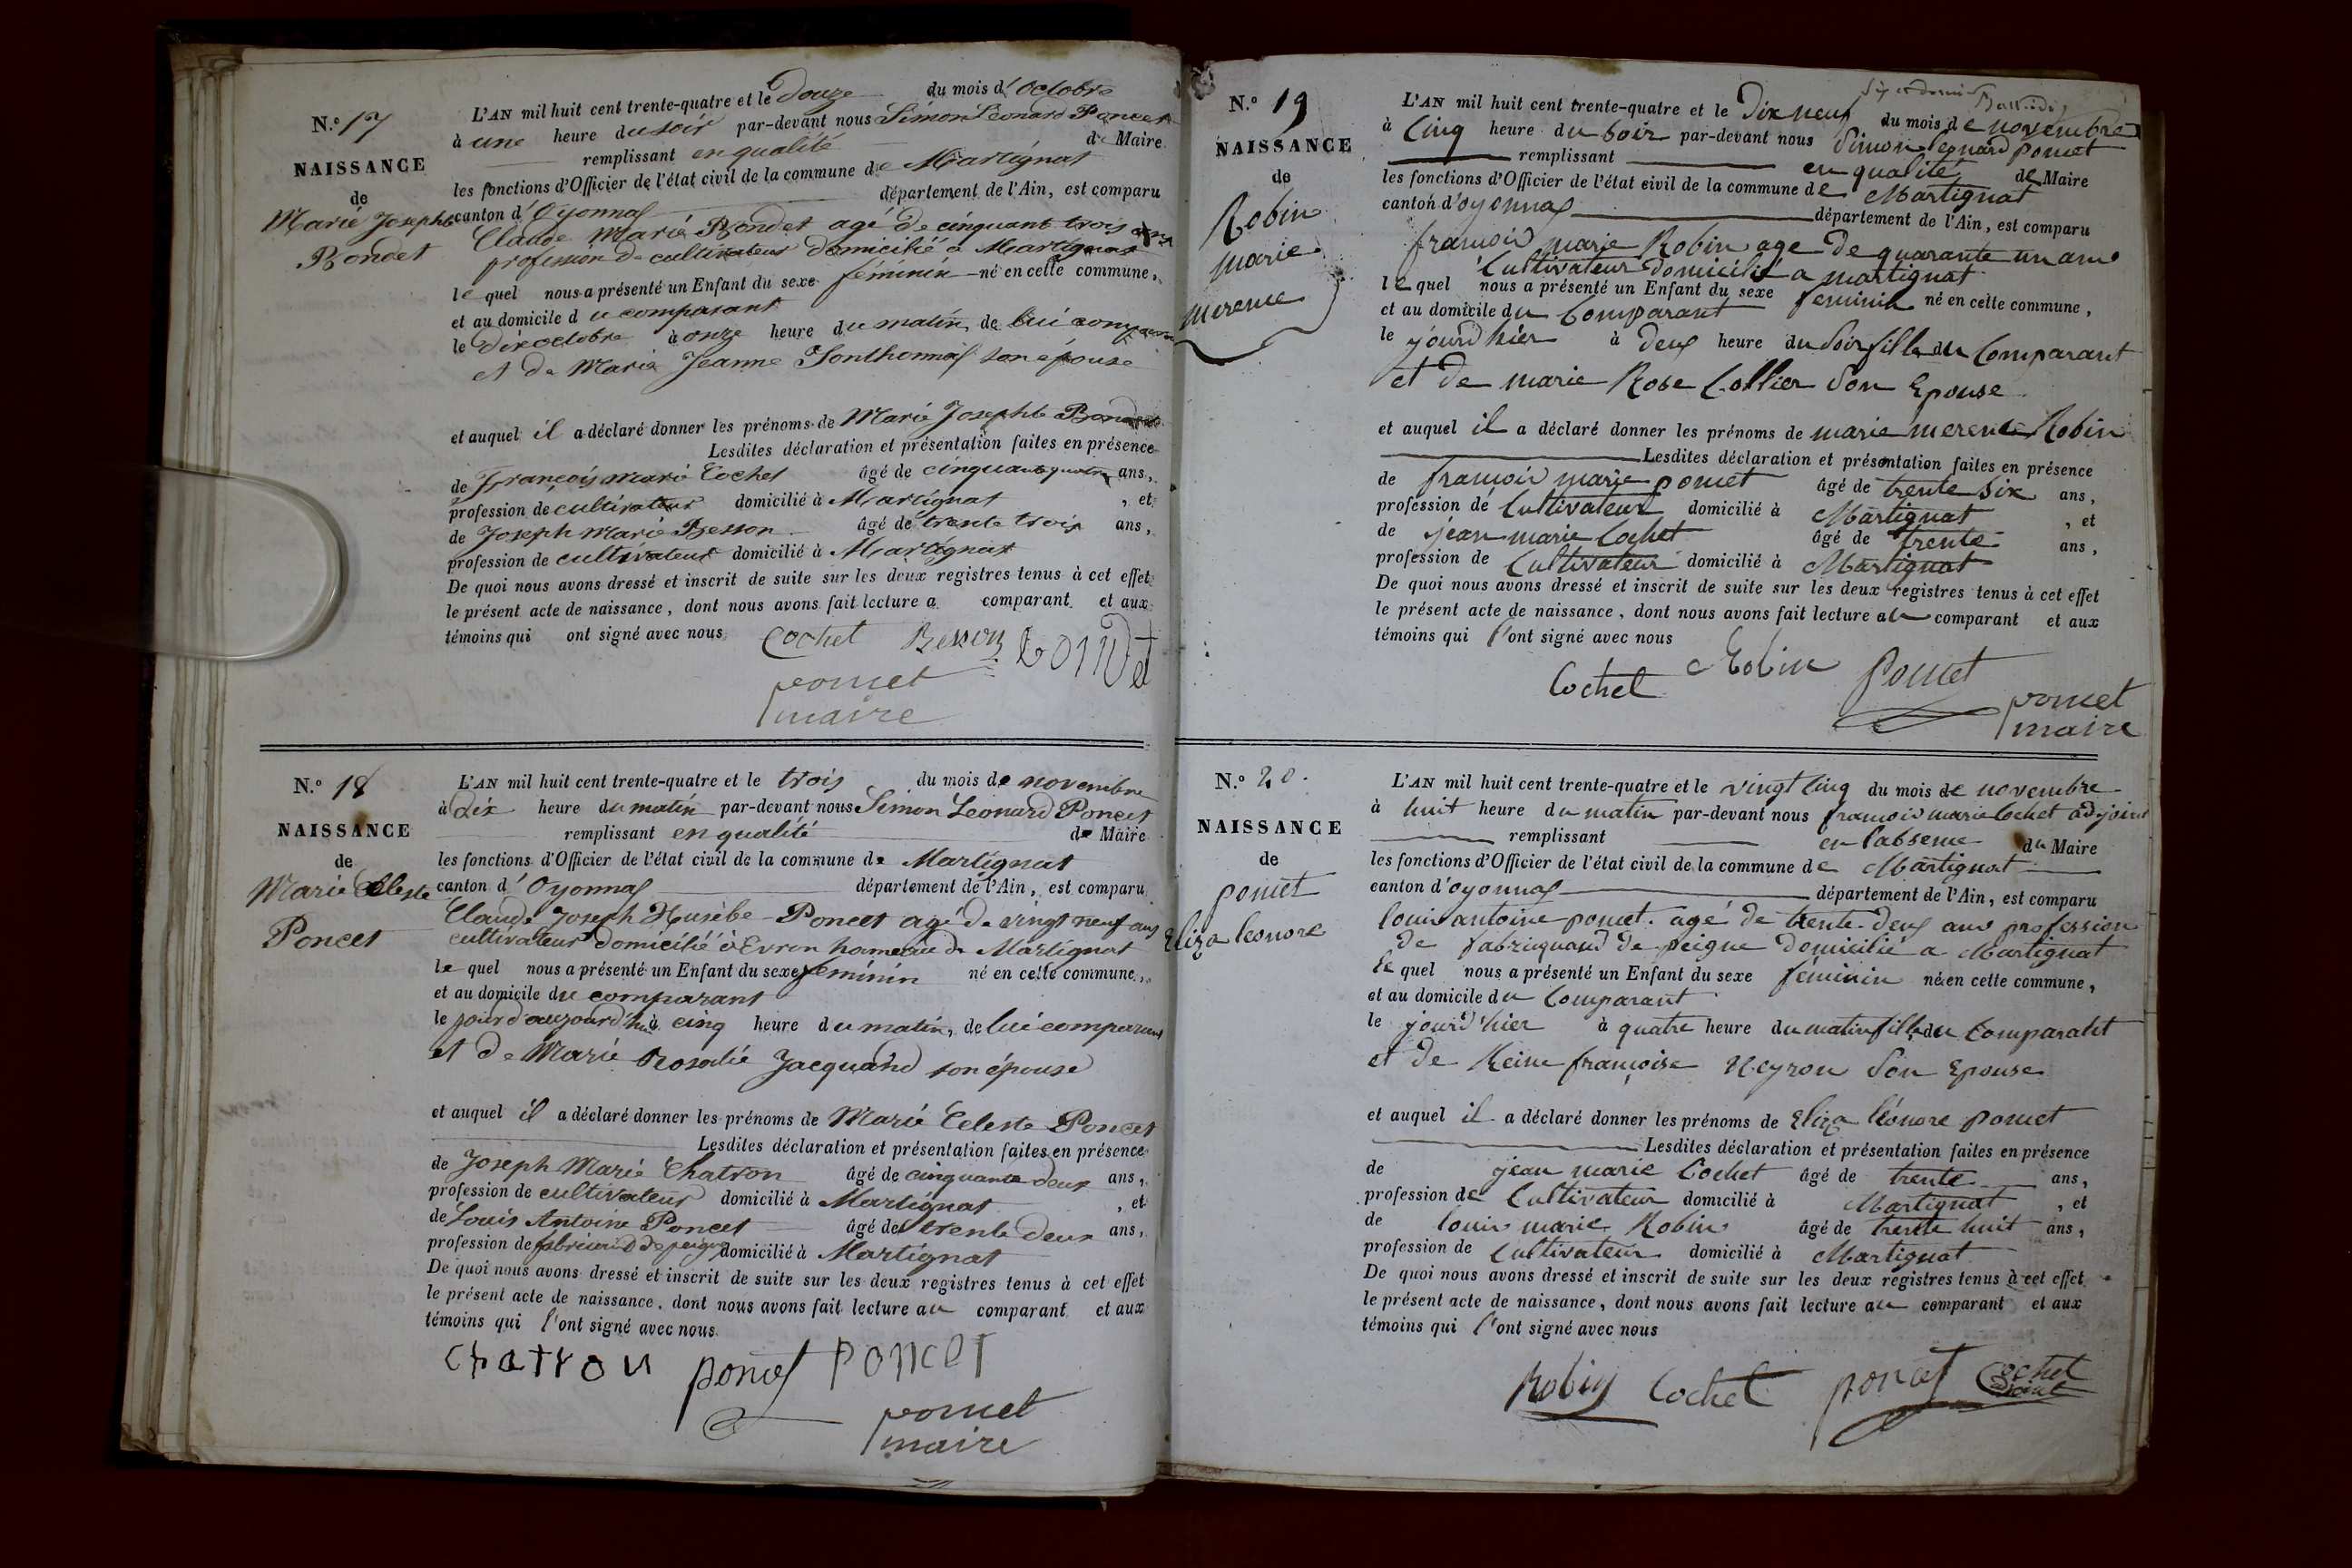 N.º 17
NAISSANCE
de
Marie Josephte
Bondet
L'AN mil huit cent trente-quatre et le Douze du mois d'Octobre
à une heure du soir par-devant nous Simon Léonard Poncet
remplissant en qualité de Maire
les fonctions d'Officier de l'état civil de la commune de Martignat
canton d'Oyonnas département de l'Ain, est comparu
Claude Marie Bondet agé de cinquant trois ans
profession de cultivateur domicilié à Martignat
lequel nous a présenté un Enfant du sexe féminin né en cette commune,
et au domicile du comparant
le dix octobre à onze heure du matin, de lui comparant
et de Marie Jeanne Sonthonnas son épouse
et auquel il a déclaré donner les prénoms de Marie Josephte Bondet
Lesdites déclaration et présentation faites en présence
de François Marie Cochet âgé de cinquante quatre ans,
profession de cultivateur domicilié à Martignat, et
de Joseph Marie Besson âgé de trente trois ans,
profession de cultivateur domicilié à Martignat
De quoi nous avons dressé et inscrit de suite sur les deux registres tenus à cet effet
le présent acte de naissance, dont nous avons fait lecture a comparant et aux
témoins qui ont signé avec nous
Cochet Besson Bondet
poncet
maire
N.º 18
NAISSANCE
de
Marie Celeste
Poncet
L'AN mil huit cent trente-quatre et le trois du mois de novembre
à dix heure du matin par-devant nous Simon Leonard Poncet
remplissant en qualité de Maire
les fonctions d'Officier de l'état civil de la commune de Martignat
canton d'Oyonnas département de l'Ain, est comparu
Claude Joseph Husèbe Poncet agé de vingt neuf ans
cultivateur domicilié à Evron hameau de Martignat
lequel nous a présenté un Enfant du sexe féminin né en cette commune,
et au domicile du comparant
le jour d'aujourd'hui à cinq heure du matin, de lui comparant
et de Marie Rosalie Jacquand son épouse
et auquel il a déclaré donner les prénoms de Marie Celeste Poncet
Lesdites déclaration et présentation faites en présence
de Joseph Marie Chatron âgé de cinquante deux ans,
profession de cultivateur domicilié à Martignat, et
de Louis Antoine Poncet âgé de trente deux ans,
profession de fabricand de peigne domicilié à Martignat
De quoi nous avons dressé et inscrit de suite sur les deux registres tenus à cet effet
le présent acte de naissance, dont nous avons fait lecture au comparant et aux
témoins qui l'ont signé avec nous
chatron poncet poncet
poncet
maire
N.º 19
NAISSANCE
de
Robin
marie
merence
L'AN mil huit cent trente-quatre et le Dix neuf du mois de novembre
à Cinq heure du Soir par-devant nous Simon leonard poncet
remplissant en qualité de Maire
les fonctions d'Officier de l'état civil de la commune de Martignat
canton d'oyonnas département de l'Ain, est comparu
francois marie Robin age de quarante un ans
Cultivateur Domicilié a martignat
lequel nous a présenté un Enfant du sexe feminin né en cette commune,
et au domicile du Comparant
le jourd hier à deux heure du Soir fille du Comparant
et de marie Rose Collier Son Epouse
et auquel il a déclaré donner les prénoms de marie merence Robin
Lesdites déclaration et présentation faites en présence
de francois marie poncet âgé de trente six ans,
profession de Cultivateur domicilié à Martignat, et
de jean marie Cochet âgé de trente ans,
profession de Cultivateur domicilié à Martignat
De quoi nous avons dressé et inscrit de suite sur les deux registres tenus à cet effet
le présent acte de naissance, dont nous avons fait lecture au comparant et aux
témoins qui l'ont signé avec nous
Cochet Robin Poncet
poncet
maire
N.º 20.
NAISSANCE
de
poncet
Eliza leonore
L'AN mil huit cent trente-quatre et le vingt Cinq du mois de novembre
à huit heure du matin par-devant nous francois marie Cochet adjoint
remplissant en l'absence du Maire
les fonctions d'Officier de l'état civil de la commune de Martignat
canton d'oyonnas département de l'Ain, est comparu
louis antoine poncet. agé de trente deux ans profession
de fabriquand de peigne domicilié a Martignat
lequel nous a présenté un Enfant du sexe feminin né en cette commune,
et au domicile du Comparant
le jourd'hier à quatre heure du matin fille du Comparant
et de Reine françoise Neyron Son Epouse
et auquel il a déclaré donner les prénoms de Eliza léonore poncet
Lesdites déclaration et présentation faites en présence
de jean marie Cochet âgé de trente ans,
profession de Cultivateur domicilié à Martignat, et
de louis marie Robin âgé de trente huit ans,
profession de Cultivateur domicilié à Martignat
De quoi nous avons dressé et inscrit de suite sur les deux registres tenus à cet effet
le présent acte de naissance, dont nous avons fait lecture au comparant et aux
témoins qui l'ont signé avec nous
Robin Cochet poncet Cochet
adjoint